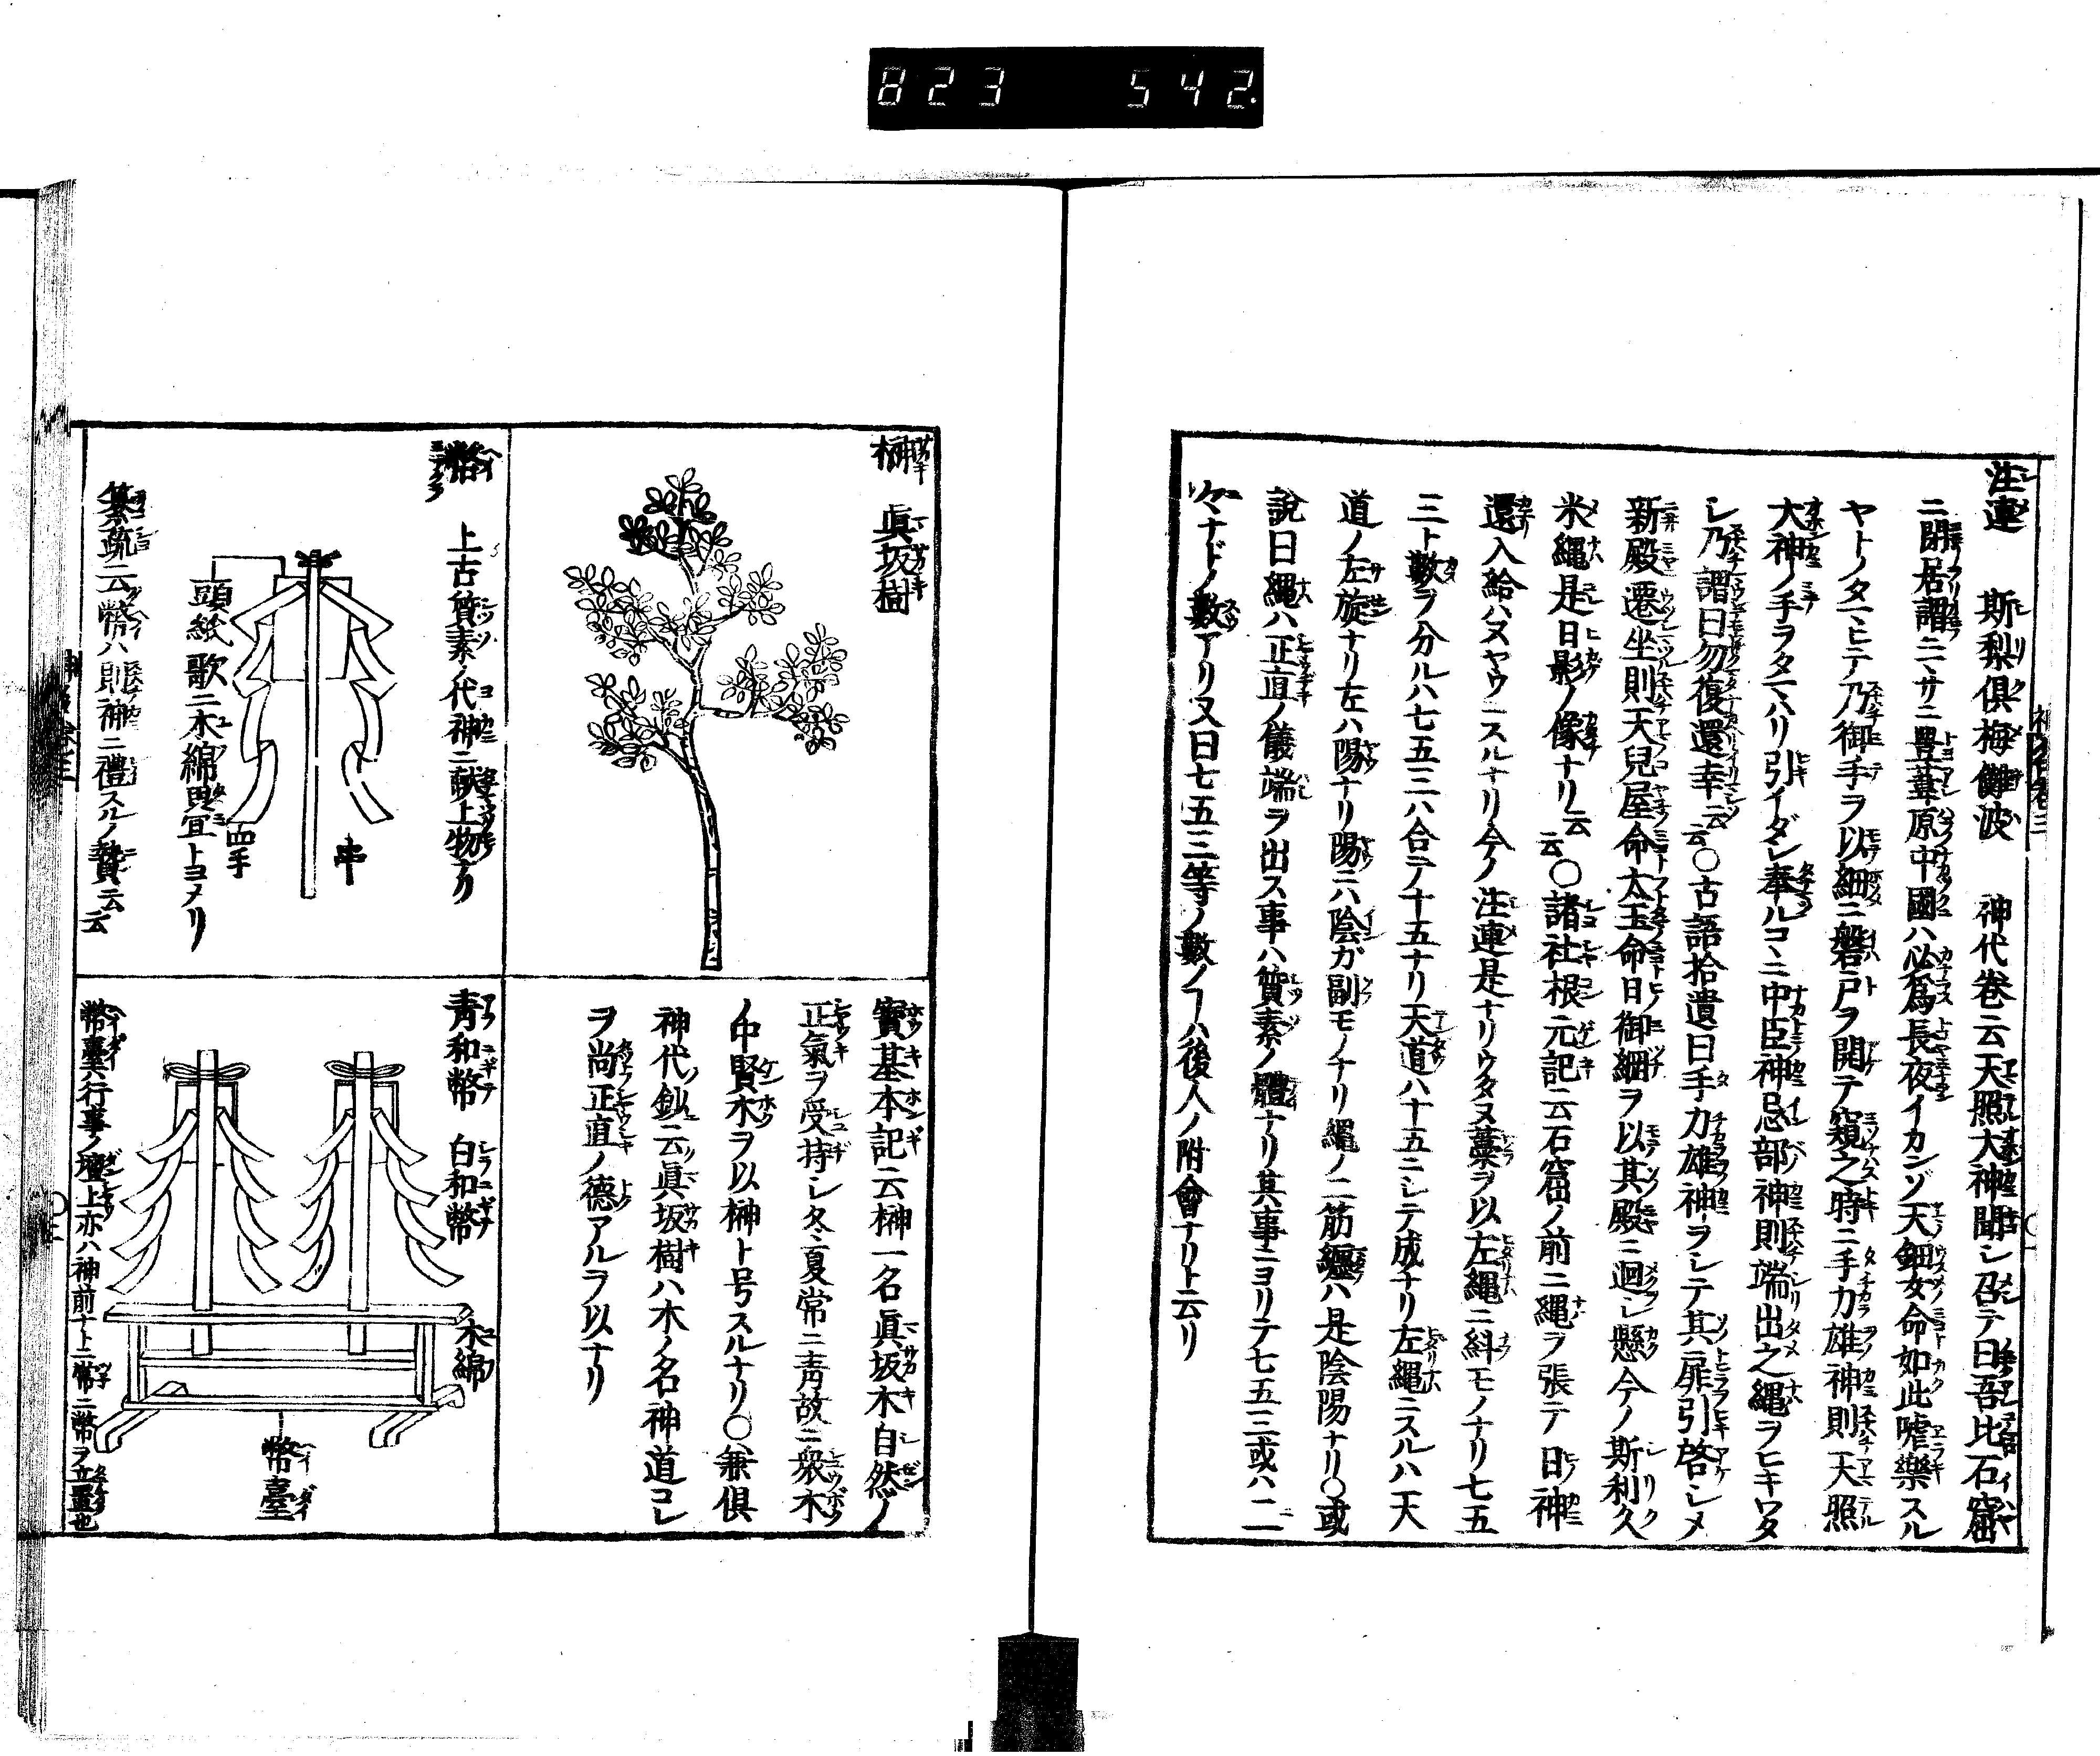 823 542.
注連 斯梨倶梅儺波 神代巻云天照大神聞シ召テ曰吾比石窟
ニ閉居謂ニマサニ豊葦原中國ハ必為長夜イカンゾ天鈿女命如此㖸樂スル
ヤトノタマヒテ乃御手ヲ以細ニ磐戸ヲ開テ窺之時ニ手力雄神則天照
大神ノ手ヲタマハリ引イダシ奉ルコヽニ中臣神忌部神則端出之縄ヲヒキワタ
シ乃謂曰勿復還幸云云〇古語拾遺曰手力雄神ヲシテ其扉引啓シメ
新殿遷坐則天兒屋命太玉命日御綱ヲ以其殿ニ迴シ懸今ノ斯利久
米縄是日影ノ像ナリ云云〇諸社根元記云石窟ノ前ニ縄ヲ張テ日神
還入給ハヌヤウニスルナリ今ノ注連是ナリウタヌ藁ヲ以左縄ニ糾モノナリ七五
三ト數ヲ分ルハ七五三ハ合テ十五ナリ天道ハ十五ニシテ成ナリ左縄ニスルハ天
道ノ左旋ナリ左ハ陽ナリ陽ニハ陰ガ副モノナリ縄ノ二筋纒ハ是陰陽ナリ〇或
說曰縄ハ正直ノ儀端ヲ出ス事ハ質素ノ體ナリ其事ニヨリテ七五三或ハ二
ナドノ數アリ又曰七五三等ノ數ノヿハ後人ノ附會ナリト云リ
榊 眞坂樹
寳基本記云榊一名眞坂木自然ノ
正氣ヲ受持シ冬夏常ニ青故ニ衆木
ノ中賢木ヲ以榊ト号スルナリ〇兼倶
神代鈔云眞坂樹ハ木ノ名神道コレ
ヲ尚正直ノ德アルヲ以ナリ
幣 上古質素ノ代神ニ獻上物ナリ
串
四手
頭紙歌ニ木綿畀宜トヨメリ
纂疏云幣ハ則神ニ禮スルノ贄云云
青和幣 白和幣
木綿
幣臺
幣臺ハ行事ノ壇上亦ハ神前ナトニ常ニ幣ヲ立置也